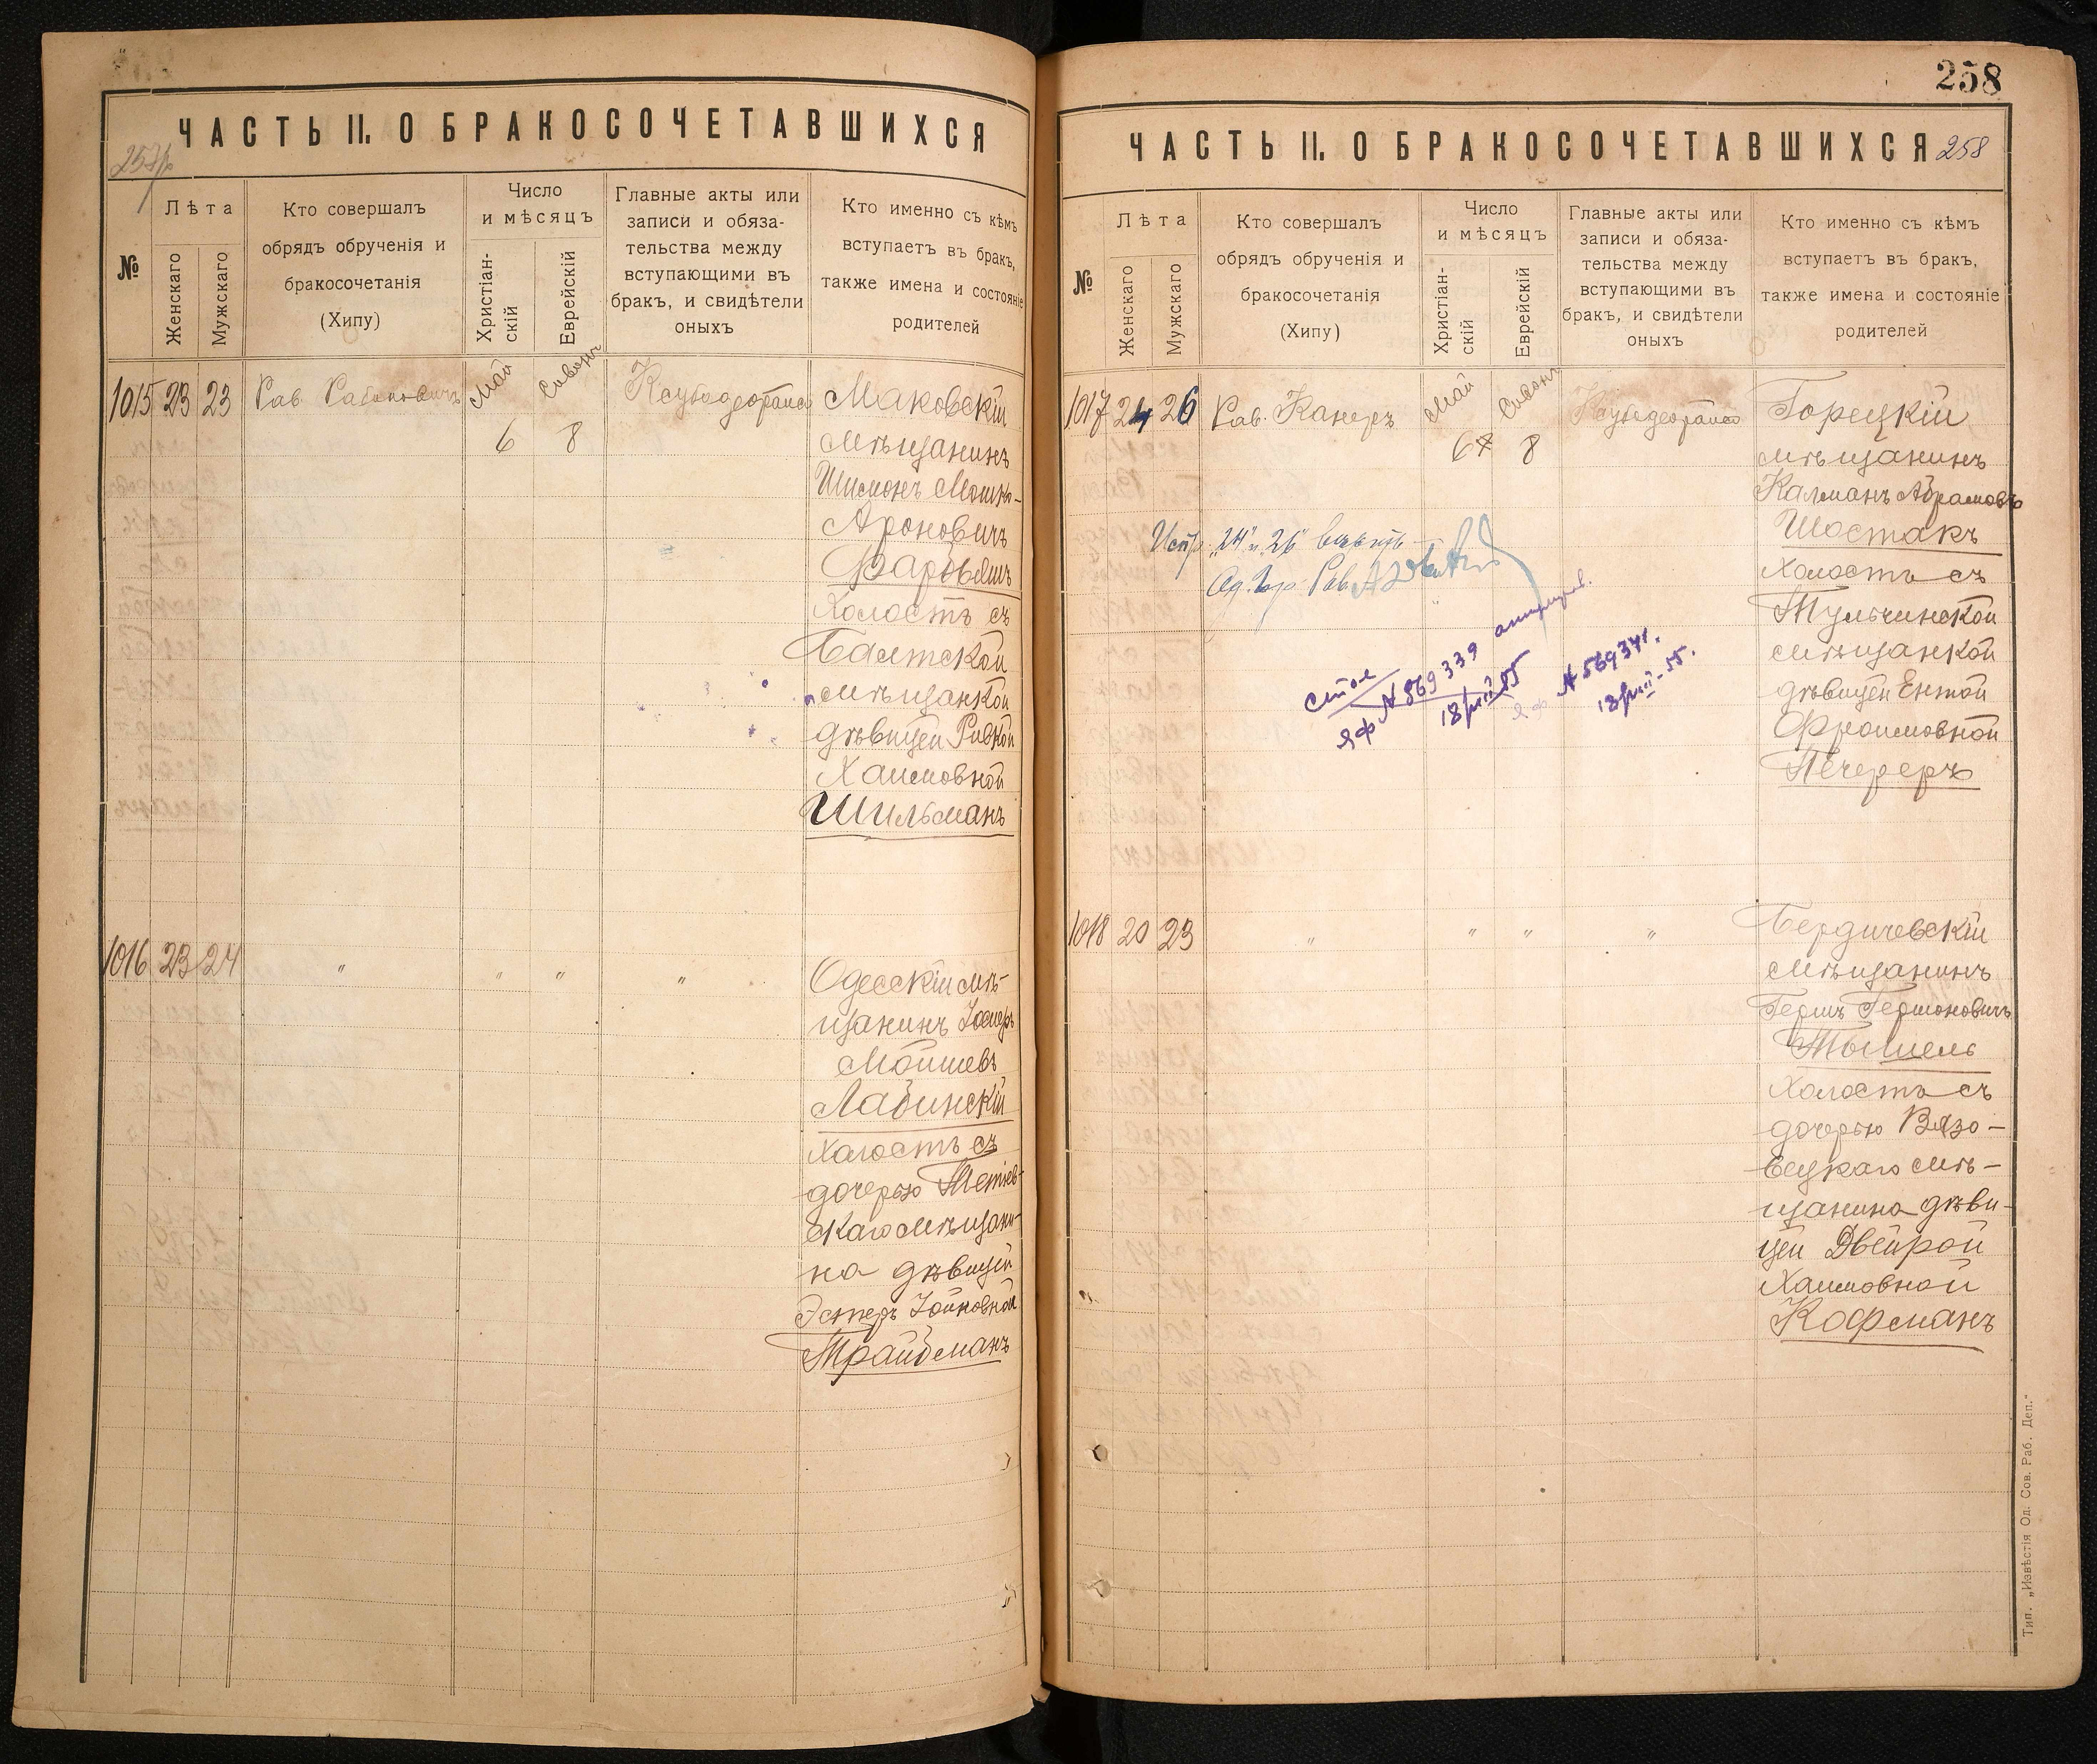 ЧАСТЬ II. О БРАКОСОЧЕТАВШИХСЯ
№
Лѣта
Женскаго
Мужскаго
Кто совершалъ
обрядъ обрученія и
бракосочетанія
(Хипу)
Число
и мѣсяцъ
Христіан-
скій
Еврейскій
Главные акты или
записи и обяза-
тельства между
вступающими въ
бракъ, и свидѣтели
оныхъ
Кто именно съ кѣмъ
вступаетъ въ бракъ,
также имена и состояніе
родителей
1015 23 23 Рав. Рабиновичъ Май Сивонъ
6 8
Маковскій
мѣщанинъ
Шимонъ Мошко-
Ароновичъ
холостъ съ
Балтской
мѣщанкой
дѣвицей Ривкой
Хаимовной
Шильманъ
1016 23 24 " " " "
Одесскій мѣ-
щанинъ
Мойшевъ
Лабинскій
холостъ съ
дочерью Тетіев-
скаго мѣщани-
на дѣвицей
Эстеръ Іойновной
Трайбманъ
258
ЧАСТЬ II. О БРАКОСОЧЕТАВШИХСЯ 258
№
Лѣта
Женскаго
Мужскаго
Кто совершалъ
обрядъ обрученія и
бракосочетанія
(Хипу)
Число
и мѣсяцъ
Христіан-
скій
Еврейскій
Главные акты или
записи и обяза-
тельства между
вступающими въ
бракъ, и свидѣтели
оныхъ
Кто именно съ кѣмъ
вступаетъ въ бракъ,
также имена и состояніе
родителей
1017 24 26 Рав. Канеръ Май Сивонъ
6 8
Горецкій
мѣщанинъ
Калманъ Абрамовъ
Шостакъ
холостъ съ
Тульчинской
мѣщанкой
дѣвицей Ентой
Фроимовной
Печереръ
Испр. "24" и "26" вѣрить
Од. Гор. Рав.
яф № 569339
18/III 55
яф № 569341.
18/III-55.
1018 20 23 " " " "
Бердичевскій
мѣщанинъ
Гершъ Гершоновичъ
холостъ съ
дочерью Вязо-
вецкаго мѣ-
щанина дѣви-
цей Двейрой
Хаимовной
Кофманъ
Тип. „Извѣстія Од. Сов. Раб. Деп."